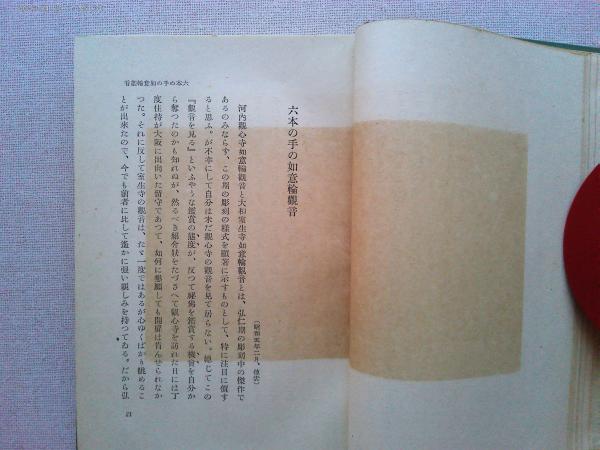 六本の手の如意輪觀音
六本の手の如意輪觀音
(昭和五年二月、佛子)
河内觀心寺如意輪觀音と大和室生寺如意輪觀音とは、弘仁期の彫刻中の傑作で
あるのみならず、この期の彫刻の樣式を顯著に示すものとして、特に注目に價す
ると思ふ。が不幸にして自分は未だ觀心寺の觀音を見て居らない。總じてこの
『觀音を見る』といふやうな鑑賞の態度が、反つて祕佛を鑑賞する機會を自分か
ら奪つたのかも知れぬが、然るべき紹介狀をたづさへて觀心寺を訪れた日には丁
度住持が大阪に出向いた留守であつて、如何に懇願しても開扉は肯んぜられなか
つた。それに反して室生寺の觀音は、たゞ一度ではあるが心ゆくばかり眺めるこ
とが出來たので、今でも前者に比して遙かに强い親しみを持つてゐる。だから弘
21